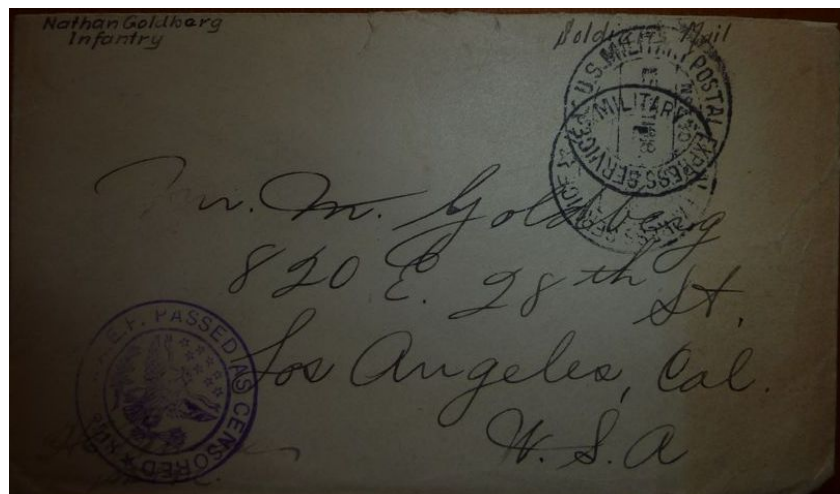 Nathan Goldberg
Infantry
Soldier's Mail
U.S. MILITARY POSTAL EXPRESS SERVICE
MILITARY
EXPRESS SERVICE
Mr. M. Goldberg
820 E. 28th St.
Los Angeles, Cal.
U.S.A
A.E.F. PASSED AS CENSORED